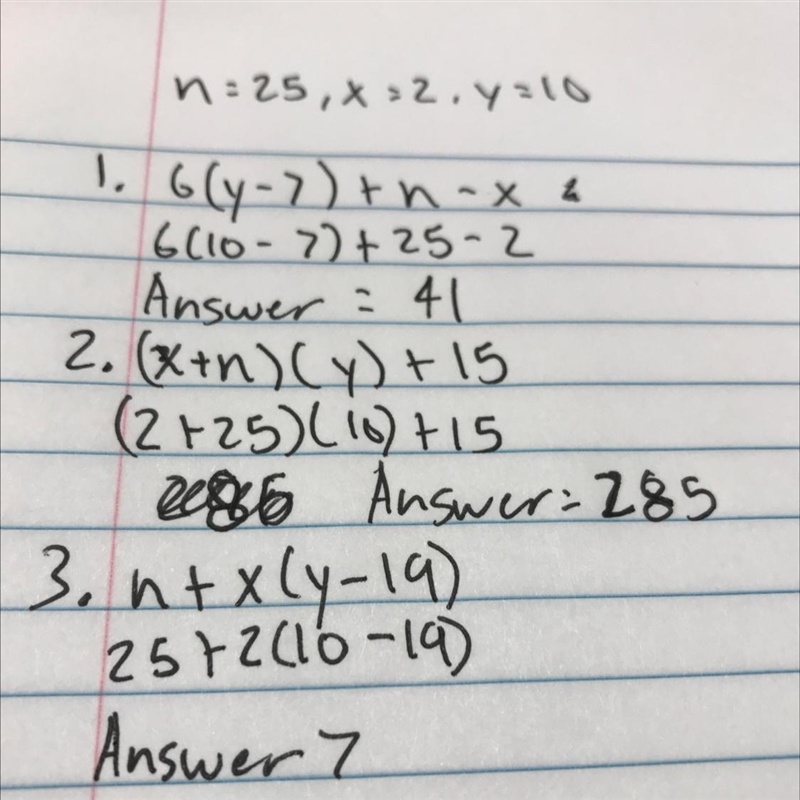 n=25, x=2, y=10
1. 6(y-7)+n-x
6(10-7)+25-2
Answer = 41
2. (x+n)(y)+15
(2+25)(10)+15
Answer=285
3. n+x(y-19)
25+2(10-19)
Answer 7